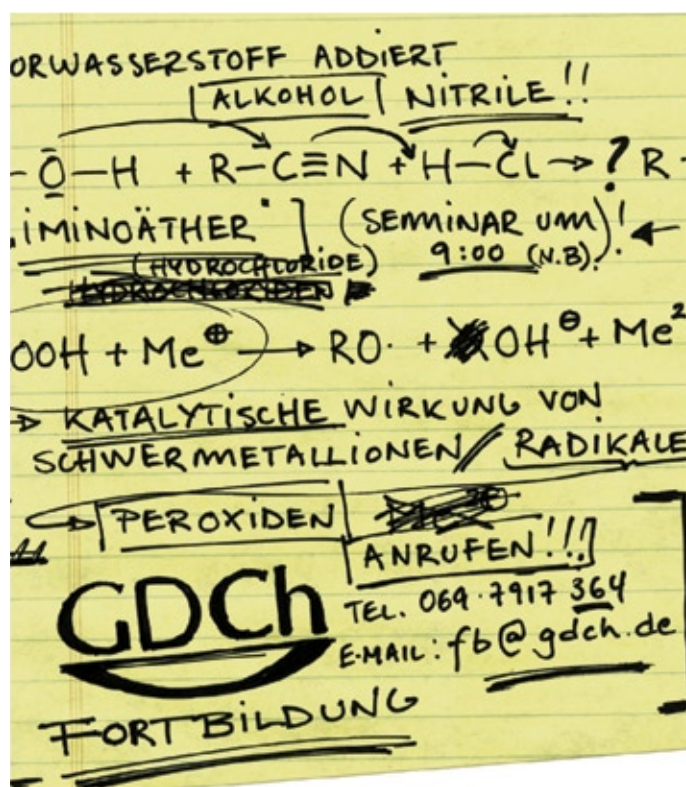 ORWASSERSTOFF ADDIERT
ALKOHOL NITRILE!!
-O-H + R-C≡N + H-Cl → ? R-
IMINOÄTHER" (SEMINAR UM)!
(HYDROCHLORIDE) 9:00 (N.B.)!
HYDROCHLORIDEN
OOH + Me⊕ → RO· + OH⊖ + Me2
→ KATALYTISCHE WIRKUNG VON
SCHWERMETALLIONEN / RADIKALE
PEROXIDEN
ANRUFEN!!!
GDCh
TEL. 069·7917 364
E-MAIL: fb@gdch.de
FORTBILDUNG